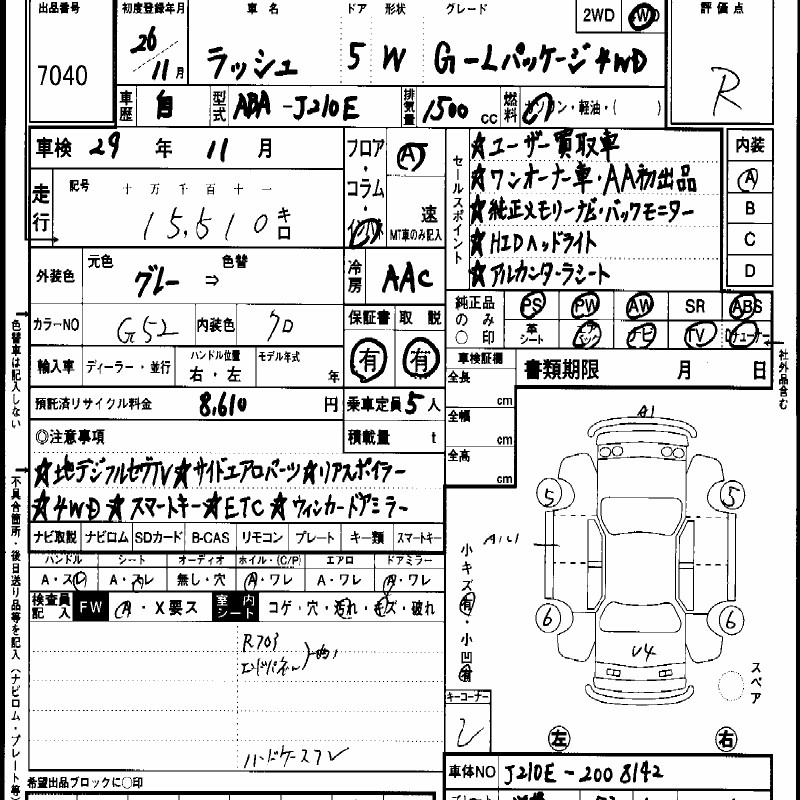 出品番号 初度登録年月 車名 ドア 形状 グレード 2WD 4WD 評価点
7040 26 11月 ラッシュ 5 W G-Lパッケージ 4WD R
車歴 自 型式 ABA-J210E 排気量 1500 cc 燃料 ガソリン・軽油・( )
車検 29 年 11 月 フロア・コラム・インパネ A 速 MT車のみ記入
セールスポイント
★ユーザー買取車
★ワンオーナー車・AA初出品
★純正メモリーナビ・バックモニター
★HIDヘッドライト
★アルカンターラシート
内装
A
B
C
D
走行 記号 十万千百十一
15,510 キロ
外装色 元色 グレー ⇒ 色替 冷房 AAC
カラーNO G52 内装色 クロ 保証書 有 取説 有
純正品のみ○印 PS PW AW SR ABS
革シート エアバック ナビ TV Dチューナー
輸入車 ディーラー・並行 ハンドル位置 右・左 モデル年式 年
車検証欄 書類期限 月 日
預託済リサイクル料金 8,610 円 乗車定員 5 人
積載量 t
全長 cm
全幅 cm
全高 cm
◎注意事項
★地デジフルセグTV★サイドエアロパーツ★リアスポイラー
★4WD★スマートキー★ETC★ウィンカードアミラー
ナビ取説 ナビロム SDカード B-CAS リモコン プレート キー類 スマートキー
ハンドル シート オーディオ ホイル・(C/P) エアロ ドアミラー
A・スレ A・スレ 無し・穴 A・ワレ A・ワレ A・ワレ
検査員記入 FW A・X要ス 室内シート コゲ・穴・汚れ・キズ・破れ
R703
エンドパネル
ハードケースフレ
希望出品ブロックに○印
色替車は記入しない
不具合箇所・後日送り品等を記入(ナビロム・プレート等)
社外品含む
A1
5 5
小キズ有・小凹有
6 6
U4
スペア
キーコーナー
左 右
車体NO J210E-2008142